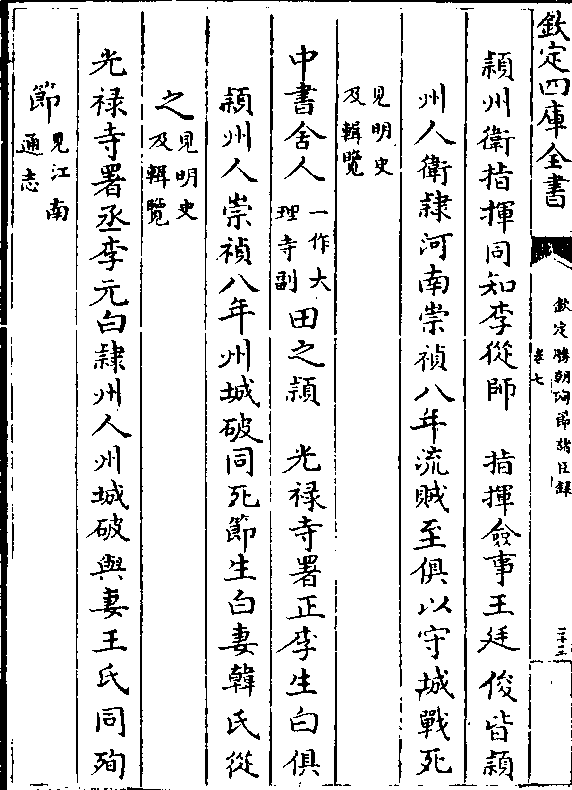 欽定四庫全書
欽定勝朝殉節諸臣錄
卷七
二十三
潁州衛指揮同知李從師　指揮僉事王廷俊皆潁
州人衛隸河南崇禎八年流賊至俱以守城戰死
見明史
及輯覽
中書舍人
一作大
理寺副
田之潁　光禄寺署正李生白俱
潁州人崇禎八年州城破同死節生白妻韓氏從
之
見明史
及輯覽
光禄寺署丞李元白隸州人州城破與妻王氏同殉
節
見江南
通志